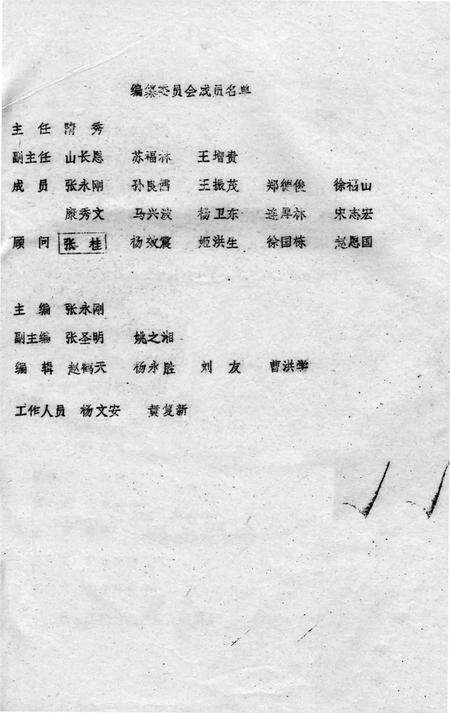 编纂委员会成员名单
主任 隋秀
副主任 山长恩 苏福林 王增贵
成员 张永刚 孙良 王振茂 郑德俊 徐福山
康秀文 马兴波 杨卫东 连厚林 宋志宏
顾问 张桂 杨效震 姬洪生 徐国栋 赵恩国
主编 张永刚
副主编 张圣明 姚之湘
编辑 赵鹤天 杨永胜 刘友 曹洪学
工作人员 杨文安 黄复新